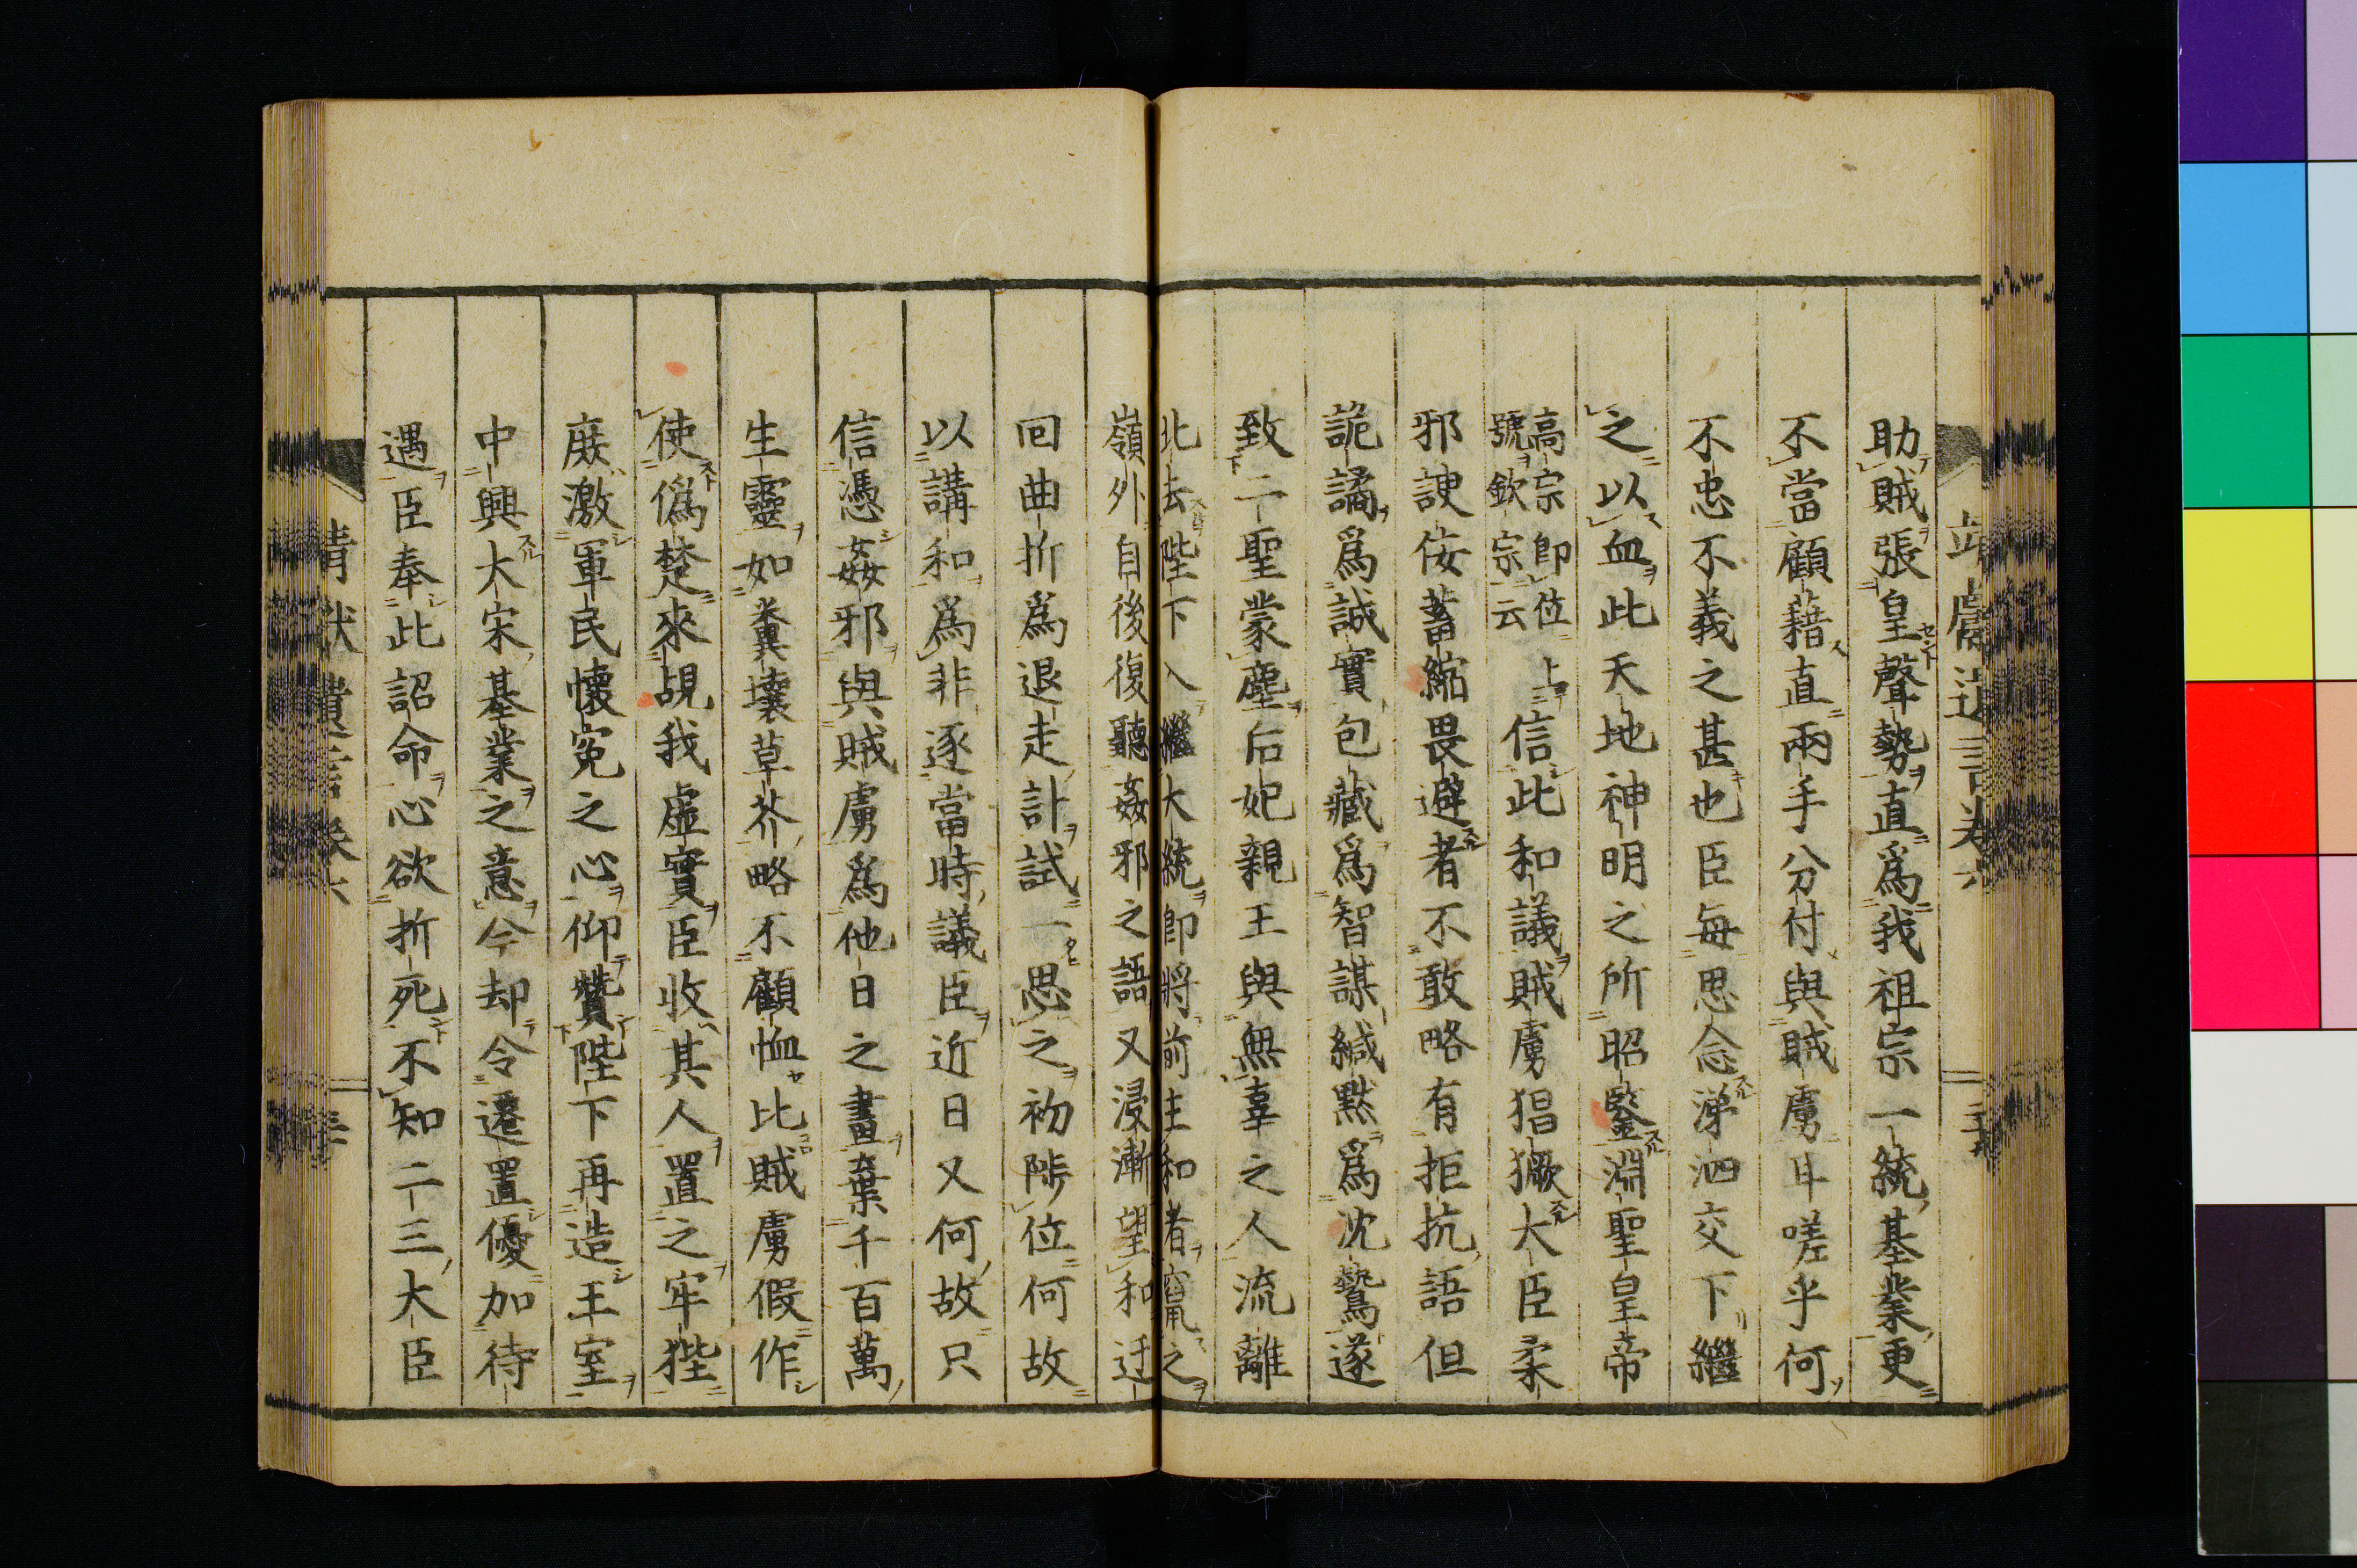 助賊張皇聲勢直爲我祖宗一統基業更
不當顧藉直兩手分付與賊虜耳嗟乎何
不忠不義之甚也臣每思念涕泗交下繼
之以血此天地神明之所昭鑒淵聖皇帝
高宗即位上
號欽宗云
信此和議賊虜猖獗大臣柔
邪諛佞蓄縮畏避者不敢略有拒抗語但
詭譎爲誠實包藏爲智謀緘默爲沈鷙遂
致二聖蒙塵后妃親王與無辜之人流離
北去陛下入繼大統即將前主和者竄之
嶺外自後復聽姦邪之語又浸漸望和迂
回曲折爲退走計試一思之初陟位何故
以講和爲非逐當時議臣近日又何故只
信憑姦邪與賊虜爲他日之畫棄千百萬
生靈如糞壤草芥略不顧恤比賊虜假作
使僞楚來覘我虛實臣收其人置之牢狴
庶激軍民懷冤之心仰贊陛下再造王室
中興大宋基業之意今却令遷置優加待
遇臣奉此詔命心欲折死不知二三大臣